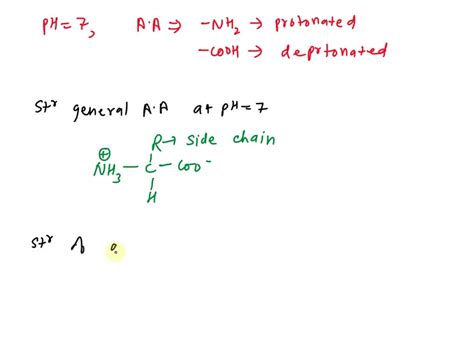 pH = 7, A·A ⇒ -NH₂ → protonated
-COOH → deprtonated
Stʳ general A·A at pH=7
R → side chain
⊕
NH₃ — C — COO⁻
H
Stʳ of